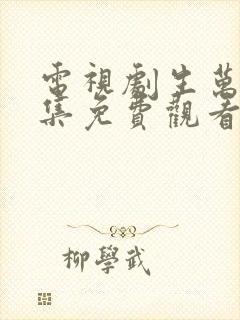 電視劇生萬
集免費觀看
柳學武